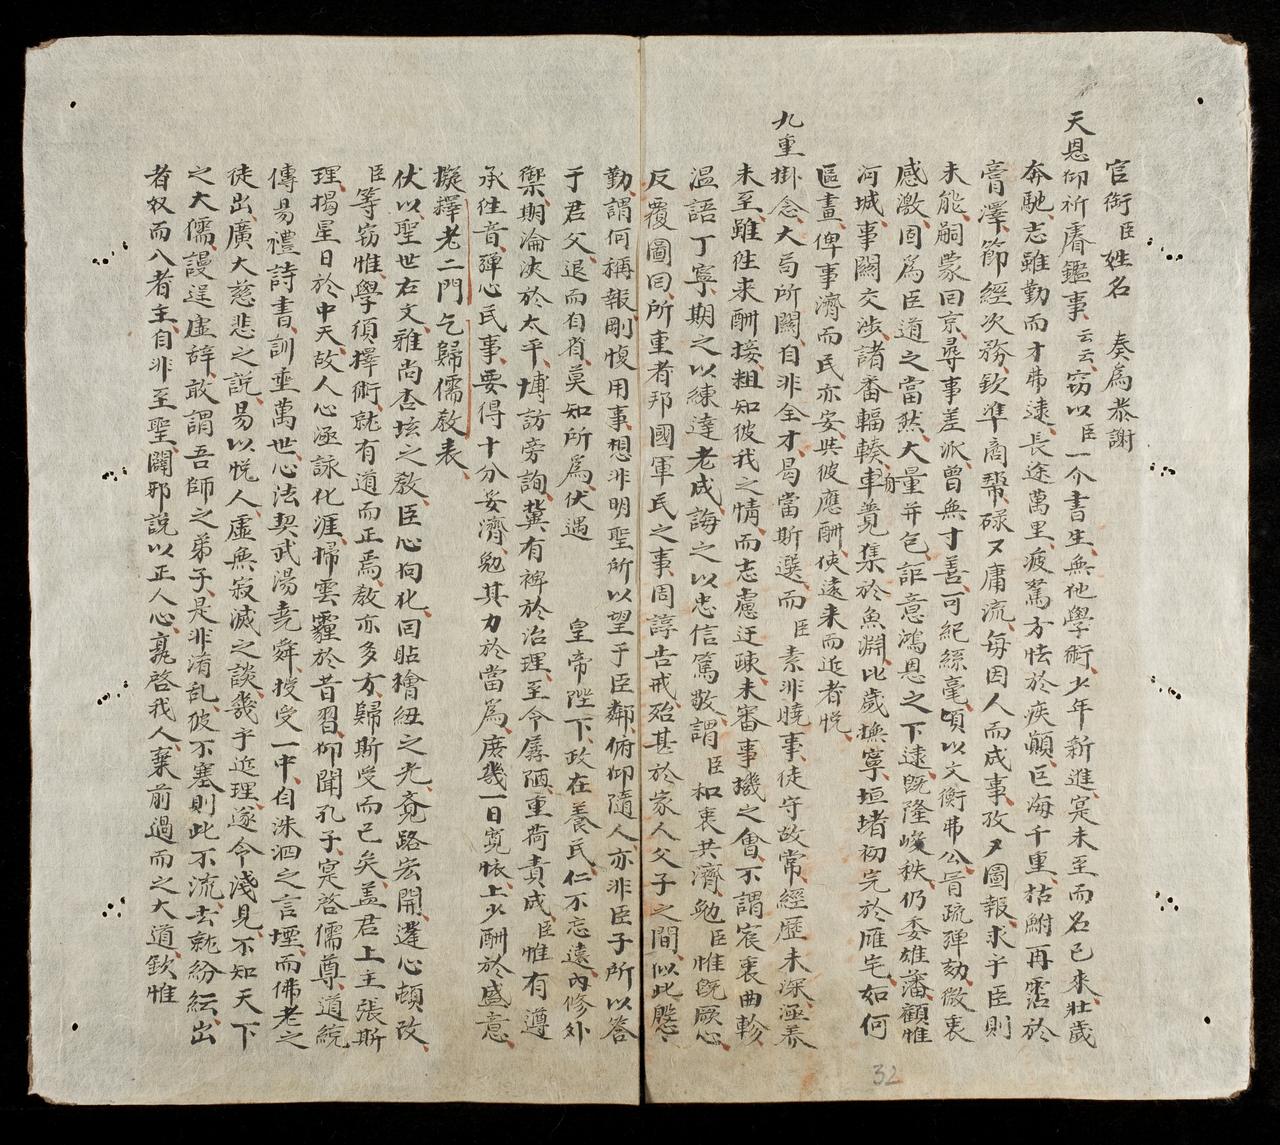 官銜臣姓名 奏為恭謝
天恩仰祈睿鑑事云云竊以臣一介書生無他學術少年新進寔未至而名已來壯歲
奔馳志雖勤而才弗逮長途萬里疲駑方怯於疾顛巨海千重枯鮒再霑於
膏澤節經次務欽準商幫碌又庸流每因人而成事孜又圖報求于臣則
未能嗣蒙回京尋事差派曾無寸善可紀絲毫頃以文衡弗公胥疏彈劾微衷
感激固為臣道之當然大量并包詎意鴻恩之下逮既隆峻秩仍委雄藩顧惟
河城事關交涉諸番輻輳車舟竟集於魚淵比歲撫寧垣堵初完於雁宅如何
區畫俾事濟而民亦安與彼應酬使遠來而近者悅
九重掛念大局所關自非全才曷當斯選而臣素非曉事徒守故常經歷未深涵養
未至雖往來酬接粗知彼我之情而志慮迂疎未審事機之會不謂宸衷曲軫
溫語丁寧期之以練達老成誨之以忠信篤敬謂臣和衷共濟勉臣惟既厥心
反覆圖囘所重者邦國軍民之事周諄告戒殆甚於家人父子之間似此慇
勤謂何稱報剛愎用事想非明聖所以望于臣鄰俯仰隨人亦非臣子所以答
于君父退而自省莫知所為伏遇 皇帝陛下政在養民仁不忘遠內修外
禦期淪浹於太平博訪旁詢冀有裨於治理至令孱陋重荷責成臣惟有遵
承徃音殫心民事要得十分妥濟勉其力於當為庶幾一日寬恢上少酬於盛意
擬釋老二門乞歸儒教表
伏以聖世右文雅尚杏垓之教臣心向化回貼檜紐之光賁路宏開違心頓改
臣等窃惟學須擇術就有道而正焉教亦多方歸斯受而已矣盖君上主張斯
理揭星日於中天故人心涵詠化涯掃雲霾於昔習仰聞孔子寔啓儒尊道統
傳易禮詩書訓垂萬世心法契武湯堯舜授受一中自洙泗之言堙而佛老之
徒出廣大慈悲之說易以悅人虛無寂滅之談幾乎近理遂令淺見不知天下
之大儒謾逞虛辞敢謂吾師之弟子是非淆乱彼不塞則此不流去就紛紜出
者奴而入者主自非至聖闢邪說以正人心曷啓我人棄前過而之大道欽惟
32